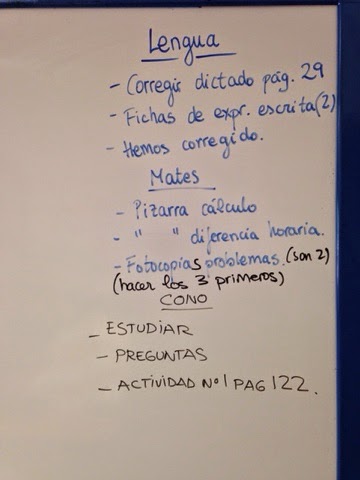 Lengua
- Corregir dictado pág. 29
- Fichas de expr. escrita(2)
- Hemos corregido.
Mates
- Pizarra cálculo
- " " diferencia horaria.
- Fotocopias problemas. (son 2)
(hacer los 3 primeros)
CONO
- ESTUDIAR
- PREGUNTAS
- ACTIVIDAD Nº1 PAG 122.